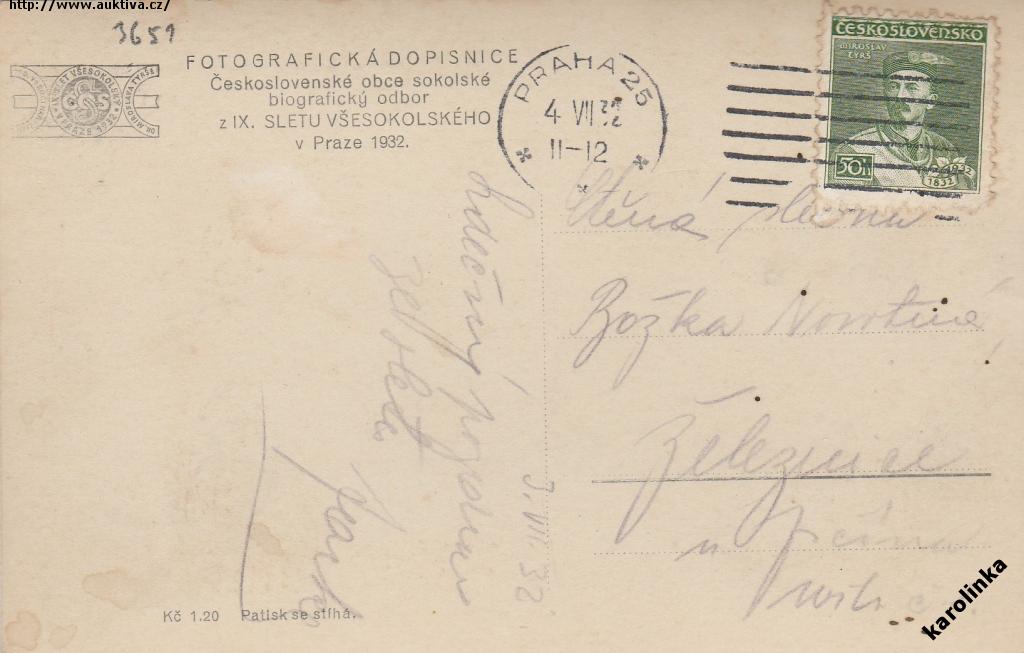 http://www.auktiva.cz/
3651
FOTOGRAFICKÁ DOPISNICE
Československé obce sokolské
biografický odbor
z IX. SLETU VŠESOKOLSKÉHO
v Praze 1932.
PRAHA 25
4 VII 32
11-12
ČESKOSLOVENSKO
MIROSLAV
TYRŠ
50h
1932
1832
Srdečný pozdrav
ze sletu
3. VII. 32
Ctěná slečna
Božka Novotná
Železnice
u Jičína
Kč 1.20 Patisk se stíhá.
karolinka